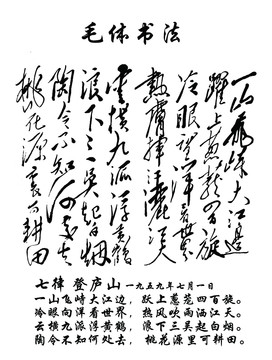 毛体书法
一山飛峙大江邊
躍上葱蘢四百旋
冷眼望洋看世界
熱膚揮汗灑江天
雲横九派浮黄鶴
浪下三吴起白烟
陶令不知何處去
桃花源裏可耕田
七律 登庐山 一九五九年七月一日
一山飞峙大江边，跃上葱茏四百旋。
冷眼向洋看世界，热风吹雨洒江天。
云横九派浮黄鹤，浪下三吴起白烟。
陶令不知何处去，桃花源里可耕田。